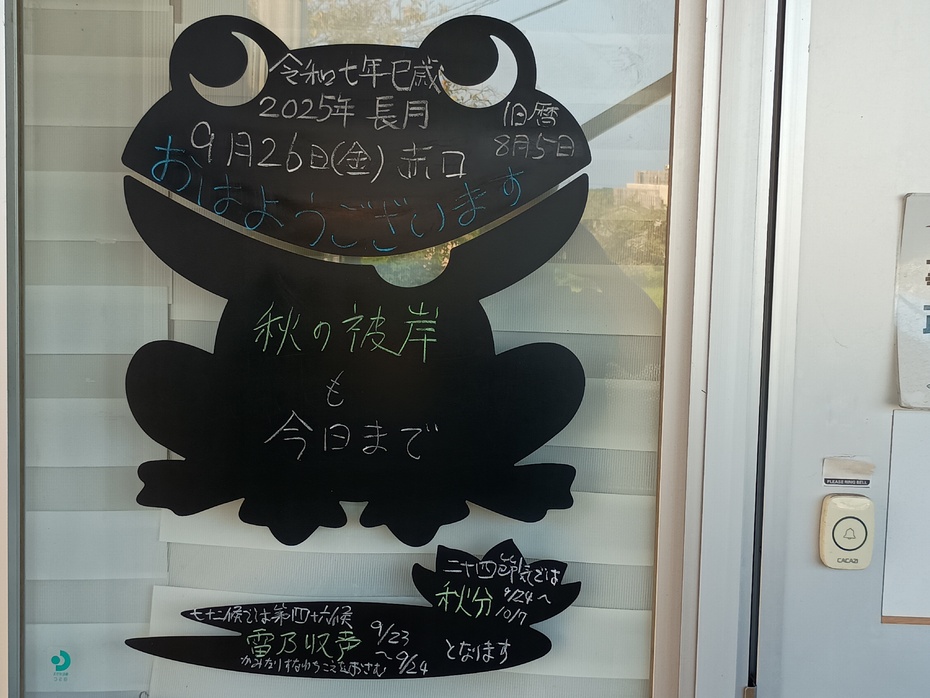 令和七年巳歳
2025年 長月
旧暦
8月5日
9月26日(金) 赤口
おはようございます
秋の彼岸
も
今日まで
二十四節気では
秋分 9/24~
10/7
七十二候では第四十六候
雷乃収声 9/23
~9/24
かみなりすなわちこえをおさむ
となります
PLEASE RING BELL
CACAZI